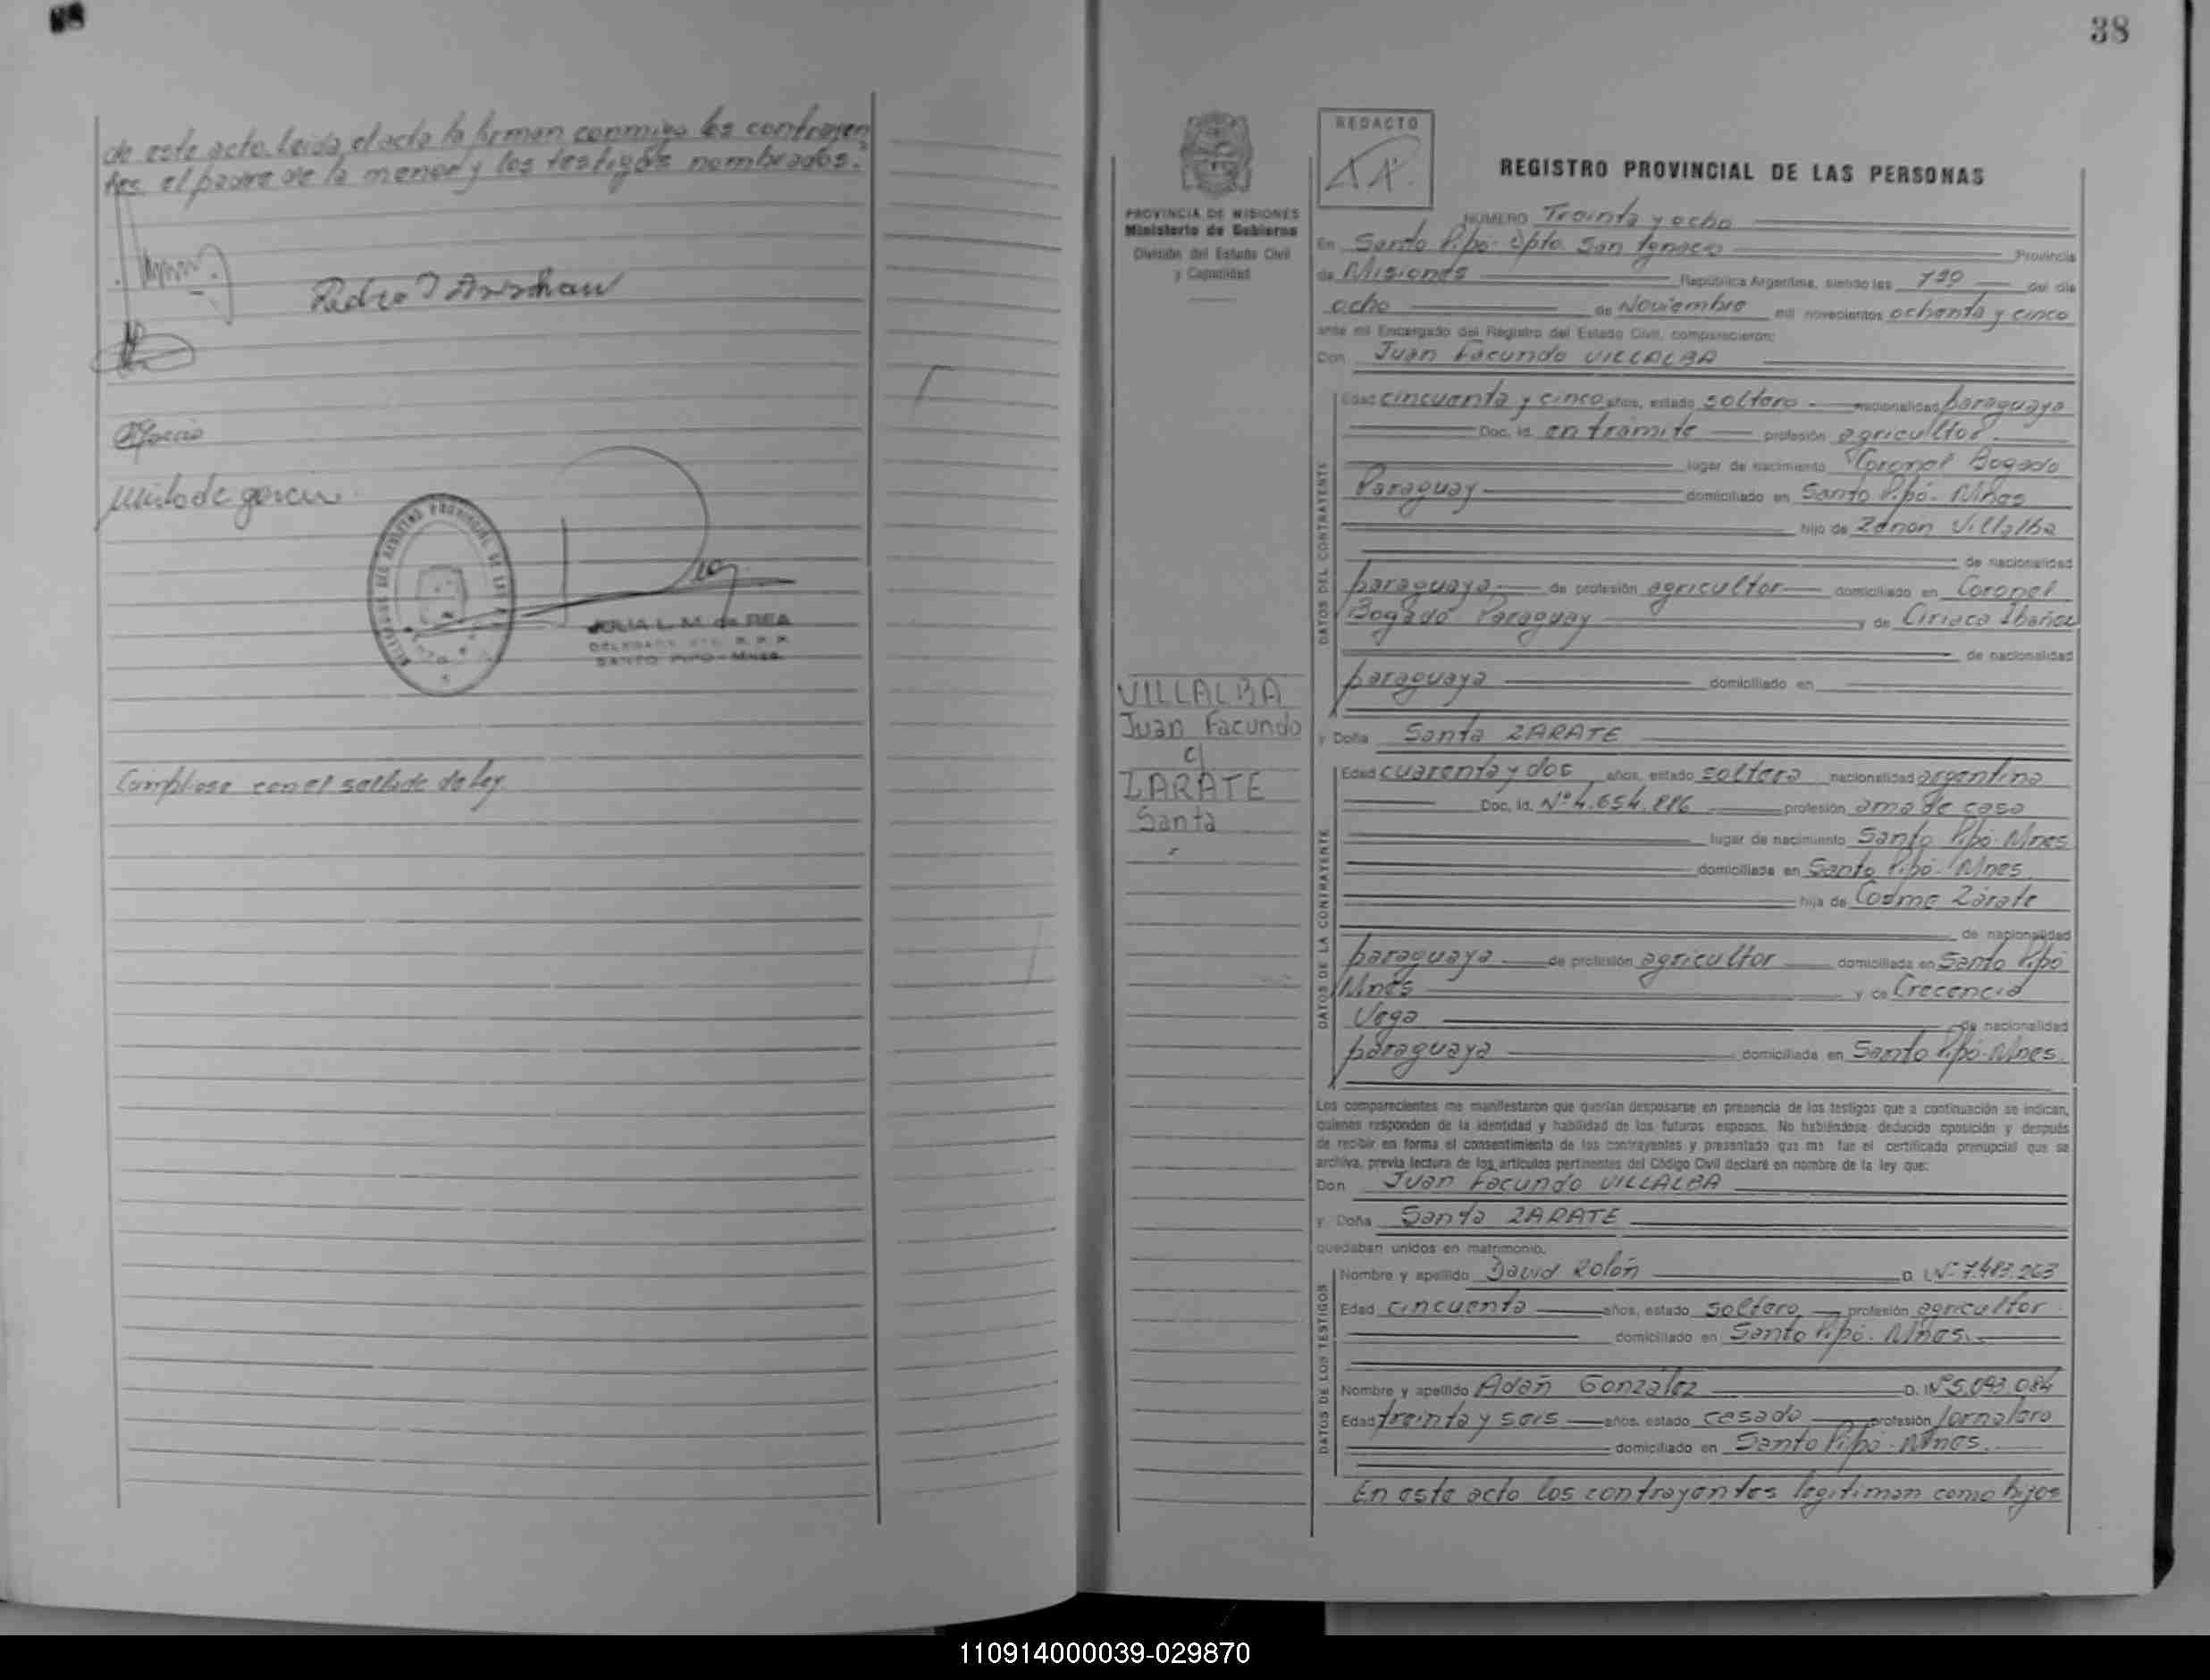 de este acto. Leida el acta la firman conmigo los contrayen
tes el padre de la menor y los testigos nombrados.
Pedro
JULIA L. M. de REA
SANTO PIPO - MNES.
Cúmpliose con el sellado de ley.
38
REDACTO
REGISTRO PROVINCIAL DE LAS PERSONAS
PROVINCIA DE MISIONES
Ministerio de Gobierno
División del Estado Civil
y Capacidad
NUMERO Treinta y ocho
En Santo Pipó - Dpto. San Ignacio Provincia
de Misiones República Argentina, siendo las del día
ocho de Noviembre mil novecientos ochenta y cinco
ante mí Encargado del Registro del Estado Civil, comparecieron:
Don Juan Facundo VILLALBA
DATOS DEL CONTRAYENTE
Edad cincuenta y cinco años, estado soltero nacionalidad paraguaya
Doc. Id. en trámite profesión agricultor
lugar de nacimiento Coronel Bogado
Paraguay domiciliado en Santo Pipó - Mnes
hijo de Zenon Villalba
de nacionalidad
paraguaya de profesión agricultor domiciliado en Coronel
Bogado Paraguay y de Ciriaca Ibañez
de nacionalidad
paraguaya domiciliado en
VILLALBA
Juan Facundo
c/
ZARATE
Santa
y Doña Santa ZARATE
DATOS DE LA CONTRAYENTE
Edad cuarenta y dos años, estado soltera nacionalidad argentina
Doc. Id. Nº 4.654.886 profesión ama de casa
lugar de nacimiento Santo Pipó - Mnes
domiciliada en Santo Pipó - Mnes.
hija de Cosme Zárate
de nacionalidad
paraguaya de profesión agricultor domiciliada en Santo Pipó
Mnes y de Crecencia
Vega de nacionalidad
paraguaya domiciliada en Santo Pipó - Mnes.
Los comparecientes me manifestaron que querían desposarse en presencia de los testigos que a continuación se indican,
quienes responden de la identidad y habilidad de los futuros esposos. No habiéndose deducido oposición y después
de recibir en forma el consentimiento de los contrayentes y presentado que me fue el certificado prenupcial que se
archiva, previa lectura de los artículos pertinentes del Código Civil declaré en nombre de la ley que:
Don Juan Facundo VILLALBA
y Doña Santa ZARATE
quedaban unidos en matrimonio.
DATOS DE LOS TESTIGOS
Nombre y apellido David Rolón D. I. Nº 7.483.263
Edad cincuenta años, estado soltero profesión agricultor
domiciliado en Santo Pipó - Mnes.
Nombre y apellido Adán González D. I. Nº 5.093.084
Edad treinta y seis años, estado casado profesión Jornalero
domiciliado en Santo Pipó - Mnes.
En este acto los contrayentes legitiman como hijos
110914000039-029870